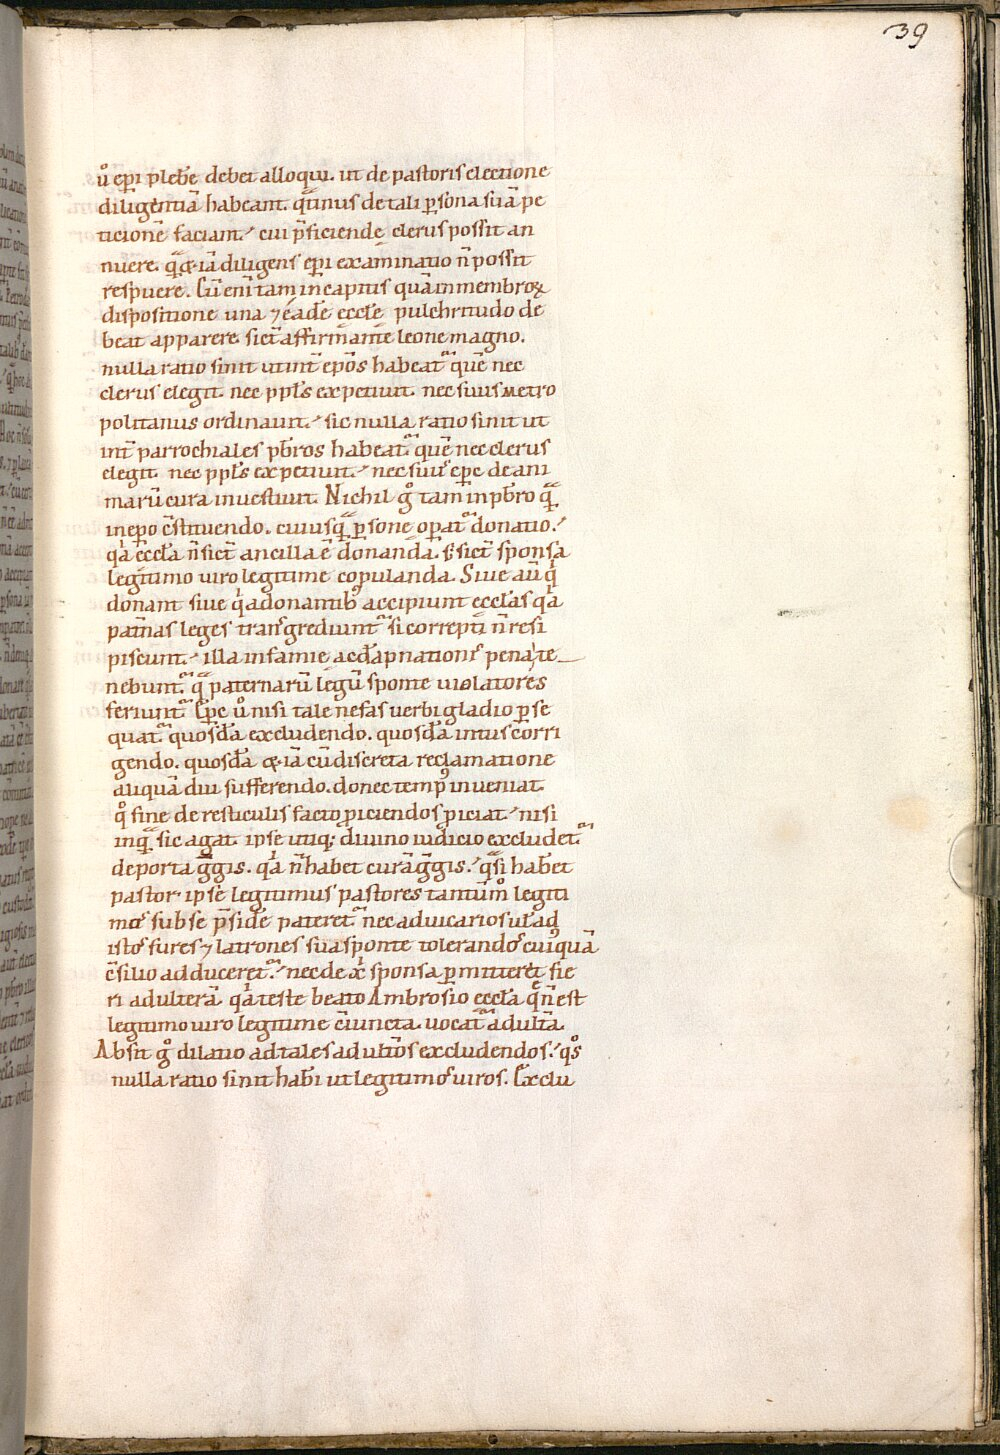 39
ů ep̄i plebē debet alloqui. ut de pastoris electione
diligentiā habeant. q̄tinus de tali p̱sona suā pe
ticionē faciant. cui p̄ficiende clerus possit an
nuere. q̄ & iā diligens ep̄i examinatio n̄ possit
respuere. Cū eni tam in capitis quam in membroꝝ
dispositione una ⁊ eadē eccłe pulchritudo de
beat apparere. sicut affirmante leone magno.
nulla ratio sinit ut inī ep̄os habeat᷑ quē nec
clerus elegit. nec pp̄ls expetiuit. nec suus metro
politanus ordinauit. sic nulla ratio sinit ut
inī parrochiales pb̄ros habeat᷑ quē nec clerus
elegit. nec pp̄ls expetiuit. nec sui᷒ ep̄c de ani
marū cura inuestiuit. Nichil g̊ tam in pb̄ro q̄
in ep̄o c̄stituendo. cuiusq̄ p̱sone opat᷑ donatio.
qͣ eccła n̄ sicut ancilla ē donanda. s; sicut sponsa
legitimo uiro legitime copulanda. Siue aū qͥ
donant siue qͥ a donantib᷒ accipiunt eccłas qͣ
pat̄nas leges transgrediunt᷑ si correpti n̄ resi
piscunt. illa infamie ac dāpnationis pena te
nebunt᷑. q̄ paternarū legū sponte uiolatores
feriunt᷑. Ep̄c ů nisi tale nefas uerbi gladio p̱se
quat᷑ quosdā excludendo. quosdā intus corri
gendo. quosdā & iā cū discreta reclamatione
aliquā diu sufferendo. donec temp᷒ inueniat
q̊ sine de resticulis facto piciendos piciat. nisi
inq̄ sic agat. ipse utiq; diuino iudicio excludet᷑
de porta g̅gis. qͣ n̄ habet curā g̅gis. q̄ si habet
pastor. ipse legitimus pastores tantūm̊ legiti
mos sub se p̄sidē pateret᷑ nec aduicarios ut ad
istos fures ⁊ latrones sua sponte tolerandos cuiquā
c̄silio adduceret᷑. nec de xp̄i sponsa p̱mitteret fie
ri adulterā. qͣ teste beato Ambrosio eccła q̄ n̄ est
legitimo uiro legitime c̄iuncta. uocat᷑ adult̄a.
Absit g̊ dilatio ad tales adult̄os excludendos. q̊s
nulla ratio sinit hab̄i ut legitimos uiros. Exclu